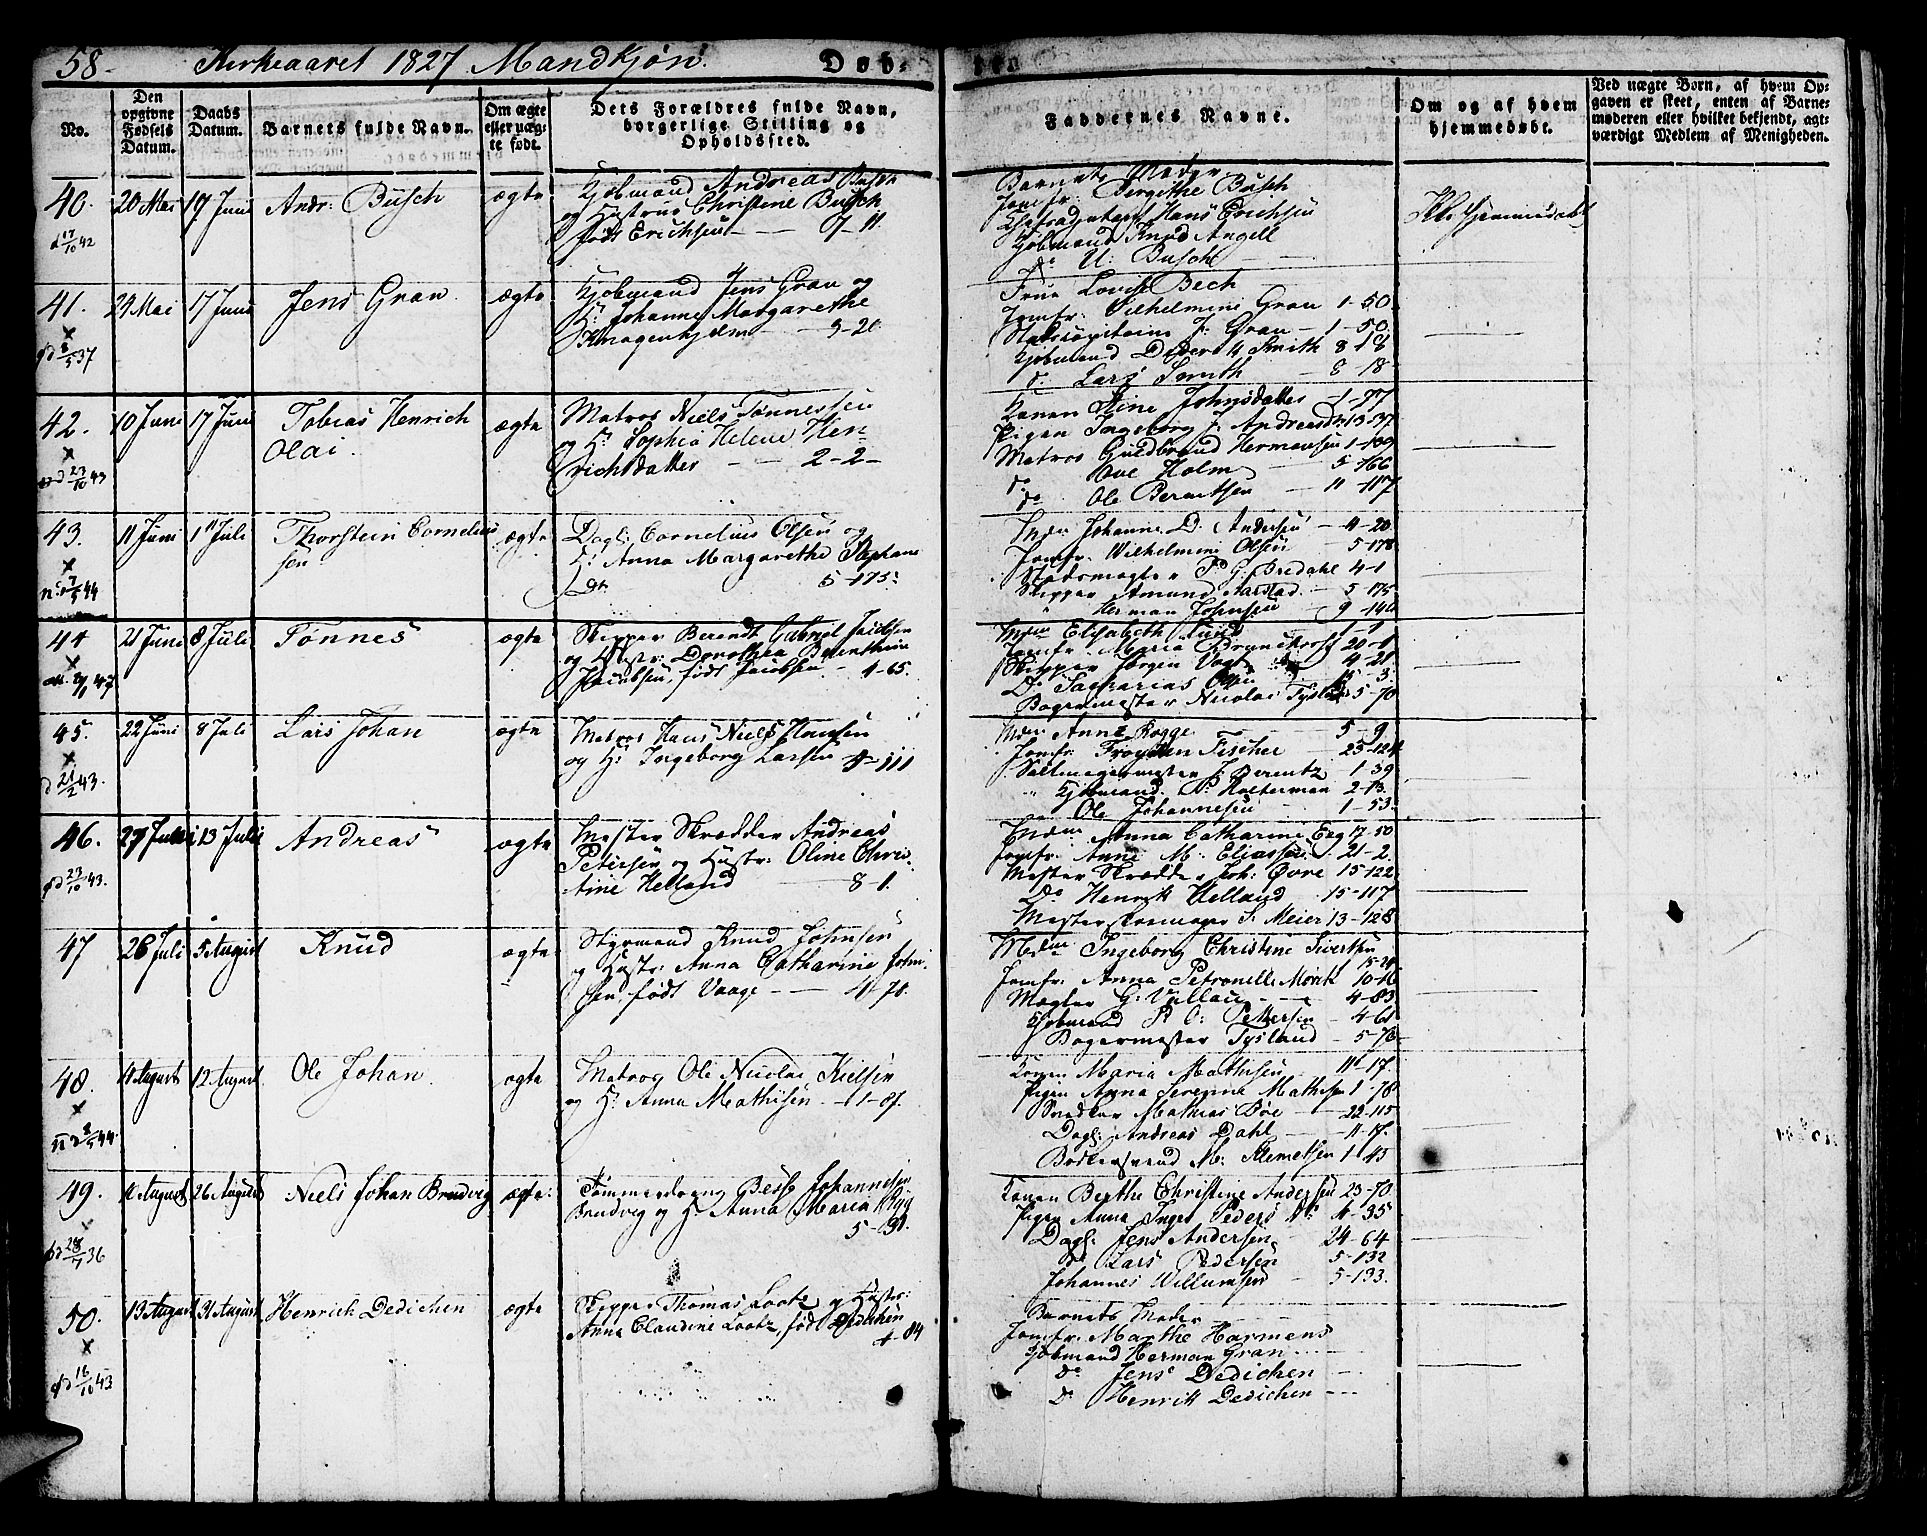 58. Kirkeaaret 1827 Mandkjøn. Døb-
No.
Den opgivne Fødsels Datum.
Daabs Datum.
Barnets fulde Navn.
Om ægte eller uægte født.
Dets Forældres fulde Navn, borgerlige Stilling og Opholdssted.
Faddernes Navne.
Om og af hvem hjemmedøbt.
Ved uægte Børn, af hvem Opgaven er skeet, enten af Barnemoderen eller hvilket bekjendt, agtværdigt Medlem af Menigheden.
40. 20 Mai 17 Juni Andr: Busch ægte
Kjøbmand Andreas Busch
og Hustrue Christine Busch
født Erichsen
Barnets Moder
Jomfr: Bergithe Busch
Hans Erichsen
Kjøbmand Knud Angell
do U: Busch
41. 24 Mai 17 Juni Jens Gran ægte
Kjøbmand Jens Gran og
H: Johanne Margarethe
Frue Lovise Bech
Jomfr: Wilhelmine Gran 1-50
J: Gran 1-50.
Kjøbmand Diderik Smith 8 18
do Lars Smith 8-18
42. 10 Juni 17 Juni Tobias Henrich
Olai.
ægte
Matros Niels Tønnessen
og H: Sophia Helene Hen-
richsdatter 2-2-
Konen Stine Johnsdatter 1-77
Pigen Ingeborg J: Andreasdr: 13-37
Matros Guldbrand Hermansen 1-109
do Ove Holm 5-166
do Ole Berentsen 11-117
43. 11 Juni 1 Juli Thorstein Cornelius
sen
ægte
Dagl: Cornelius Olsen og
H: Anna Margarethe Stephans
Dtr. 5-175:
Mdm Johanne D. Andersen 4-20
Jomfr. Wilhelmine Olsen 5-178
P: G: Bredahl 4-1
Skipper Amund Aarstad 5-175
Herman Johnsen 9-146
44 21 Juni 8 Juli Tønnes ægte
Skipper Berendt Gabriel Jacobsen
og Hustr: Dorothea Berenthine
Jacobsen, født Jacobsen 4-65.
Mdm Elisabeth Lund 1-1
Jomfr: Maria 20-1
Skipper Jørgen Vogt 4-21
Do Sacharias Olsen 15-3.
Bagermester Nicolai Tysland 5-70
45. 22 Juni 8 Juli Lars Johan ægte
Matros Hans Niels Hansen
og H: Ingeborg Larsen 4-111
Mdm Anne Rogge 5-9
Jomfr: Fischer 23-124
J: Berentz 1-39
Kjøbmand N: Holterman 2-13.
Ole Johannesen 1-53
46. 27 Juni 13 Juli Andreas ægte
Mester Skrædder Andreas
Petersen og Hustr: Oline Chris-
tine Helland 8-1.
Mdm Anna Catharine 17-50
Jomfr: Anne M: Eliassen 21-2.
Mester Skrædder Joh: Øvre 15-122
Do Henrik Helland 15-117
Mester Skomager S: Meier 13-128
47 26 Juli 5 August Knud ægte
Styrmand Knud Johnsen
og Hustr: Anna Catharine John-
sen, født Vaage 4-70.
Mdm Ingeborg Christine Sivertsen
15-24
Jomfr: Anna Petronelle Mørck 10-16
Mægler G: 4-83
Kjøbmand P. C: Pettersen 4-61
Bagermester Tysland 5-70
48. 4 August 12 August Ole Johan. ægte
Matros Ole Nicolai Kielsen
og H: Anna Mathisen 1-81.
Konen Maria Mathisen 11-17.
Pigen Anna Serenine Mathisen 1 78
Snedker Mathias Bøe 22-115
Dagl: Andreas Dahl 11-17.
Bødkersvend M: Klemetsen 1 45
49. 11 August 26 August Niels Johan Brudvig ægte:
Tømmerdreng Besse Johannesen
Brudvig og H: Anna Maria
5-91.
Konen Berthe Christine Andersen 23-70
Pigen Anna Inger Peders Dr: 4-35
Dagl: Jens Andersen 24-64
do Lars Pedersen 5-132
Johannes Willumsen 5-133.
50. 13 August 31 August Henrich Dedichen ægte
Skipper Thomas Lootz og Hustr:
Anne Claudine Lootz, født Dedichen
4-84
Barnets Moder
Jomfr: Marthe Harmens
Kjøbmand Herman Gran
do Jens Dedichen
do Henrik Dedichen